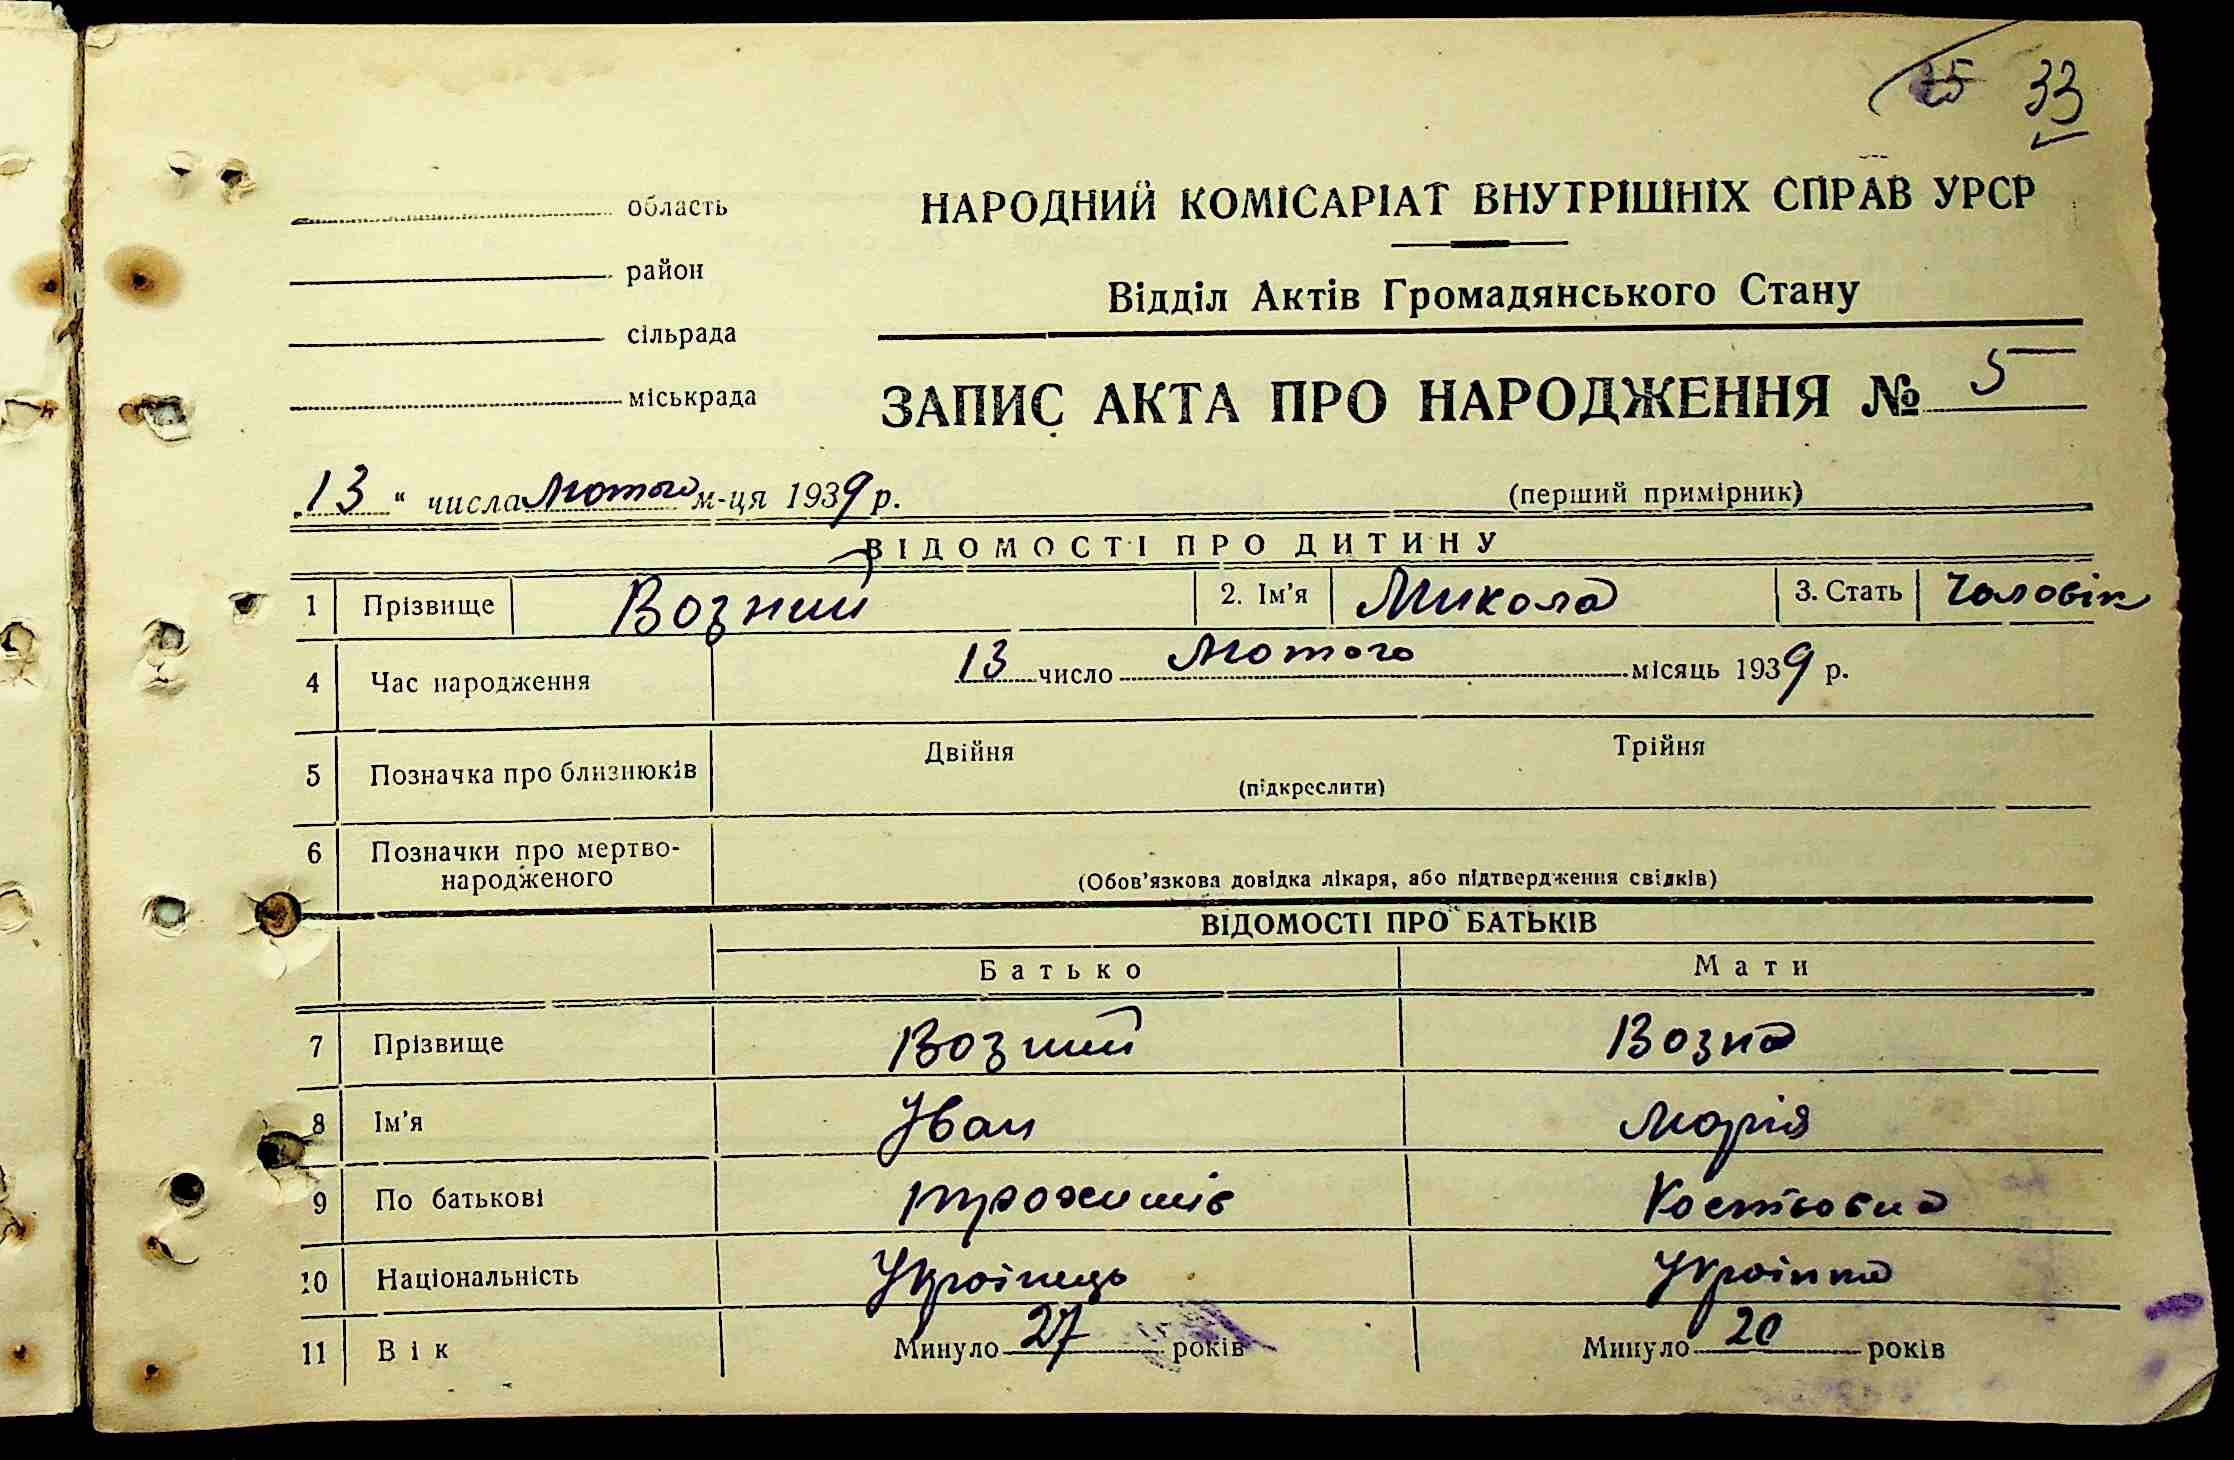 25 33
область
район
сільрада
міськрада
НАРОДНИЙ КОМІСАРІАТ ВНУТРІШНІХ СПРАВ УРСР
Відділ Актів Громадянського Стану
ЗАПИС АКТА ПРО НАРОДЖЕННЯ № 5
13 " числа Лютого м-ця 1939 р.
(перший примірник)
ВІДОМОСТІ ПРО ДИТИНУ
1 Прізвище Возний 2. Ім'я Микола 3. Стать Чоловік
4 Час народження 13 число Лютого місяць 1939 р.
5 Позначка про близнюків Двійня Трійня
(підкреслити)
6 Позначки про мертво-
народженого
(Обов'язкова довідка лікаря, або підтвердження свідків)
ВІДОМОСТІ ПРО БАТЬКІВ
Батько Мати
7 Прізвище Возний Возна
8 Ім'я Іван Марія
9 По батькові Костьовна
10 Національність Українець Українка
11 Вік Минуло 27 років Минуло 20 років